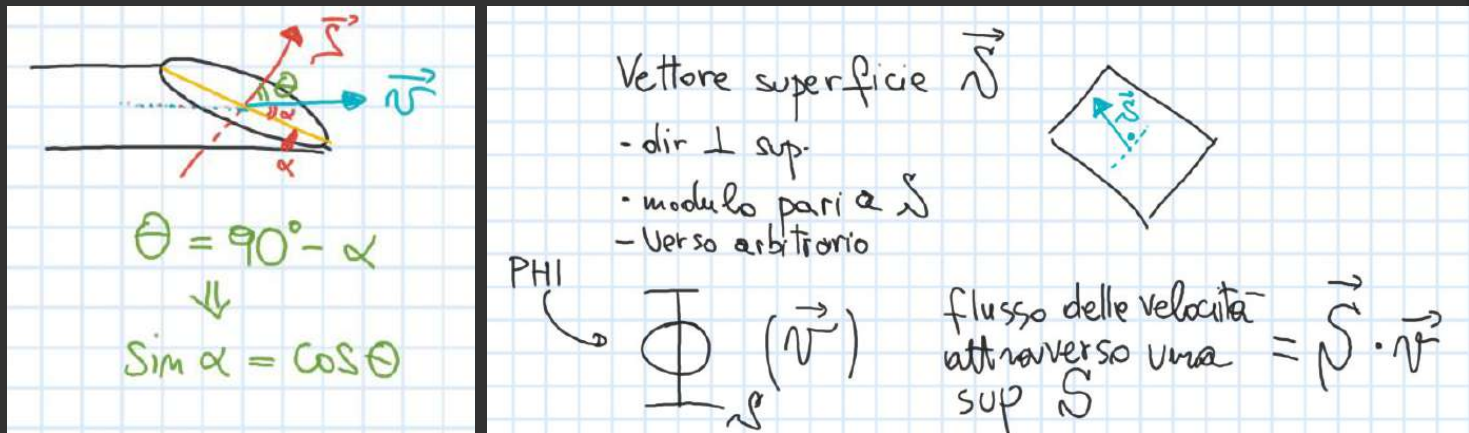 S⃗
θ
v⃗
α
α
θ = 90° - α
⇓
Sin α = cos θ
Vettore superficie S⃗
- dir ⊥ sup.
· modulo pari a S
- Verso arbitrario
S⃗
PHI
Φ_S (v⃗) flusso delle velocità attraverso una sup S = S⃗ · v⃗